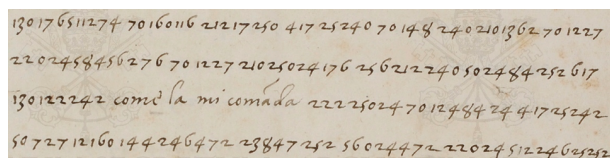 130176511274 70160116 21217250 417252407014824021013627012 27
220245845627670122721025024176 2562122405024842526 17
130122242 come la mi comãda 222250247012484244172 5242
50727121601442464722384725256024472220245122462525 2